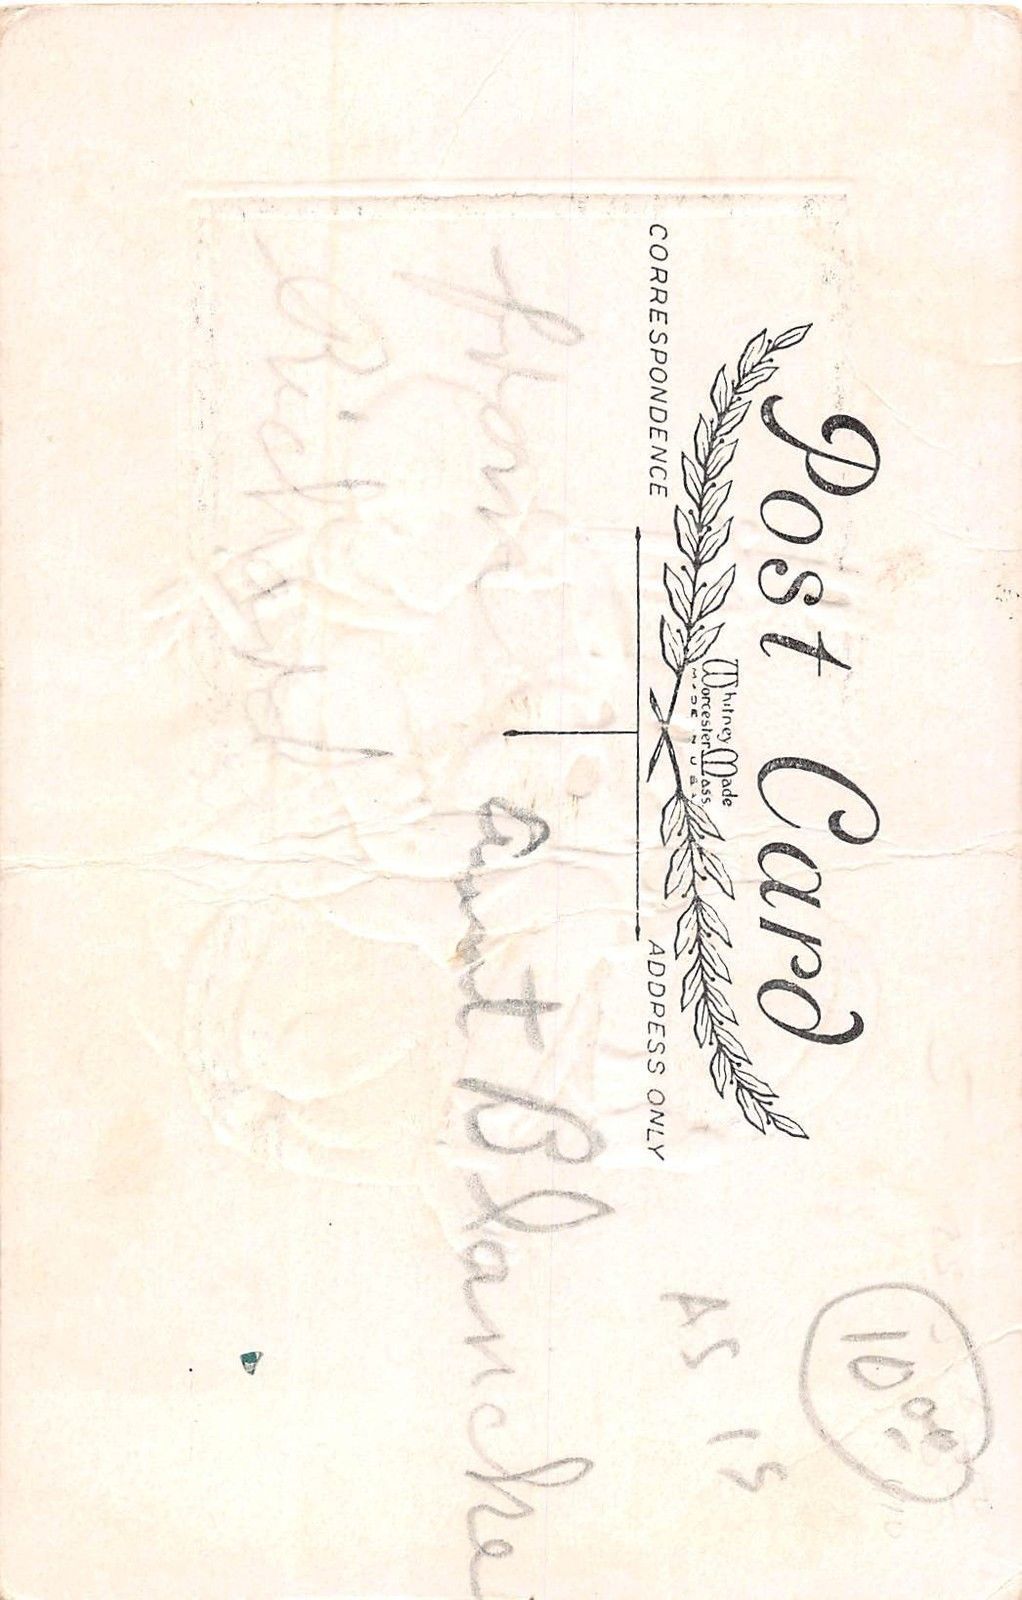 Post Card
Whitney Made
Worcester Mass.
MADE IN U S A
CORRESPONDENCE
ADDRESS ONLY
10.00
AS IS
from
Aunt Blanche
Richard